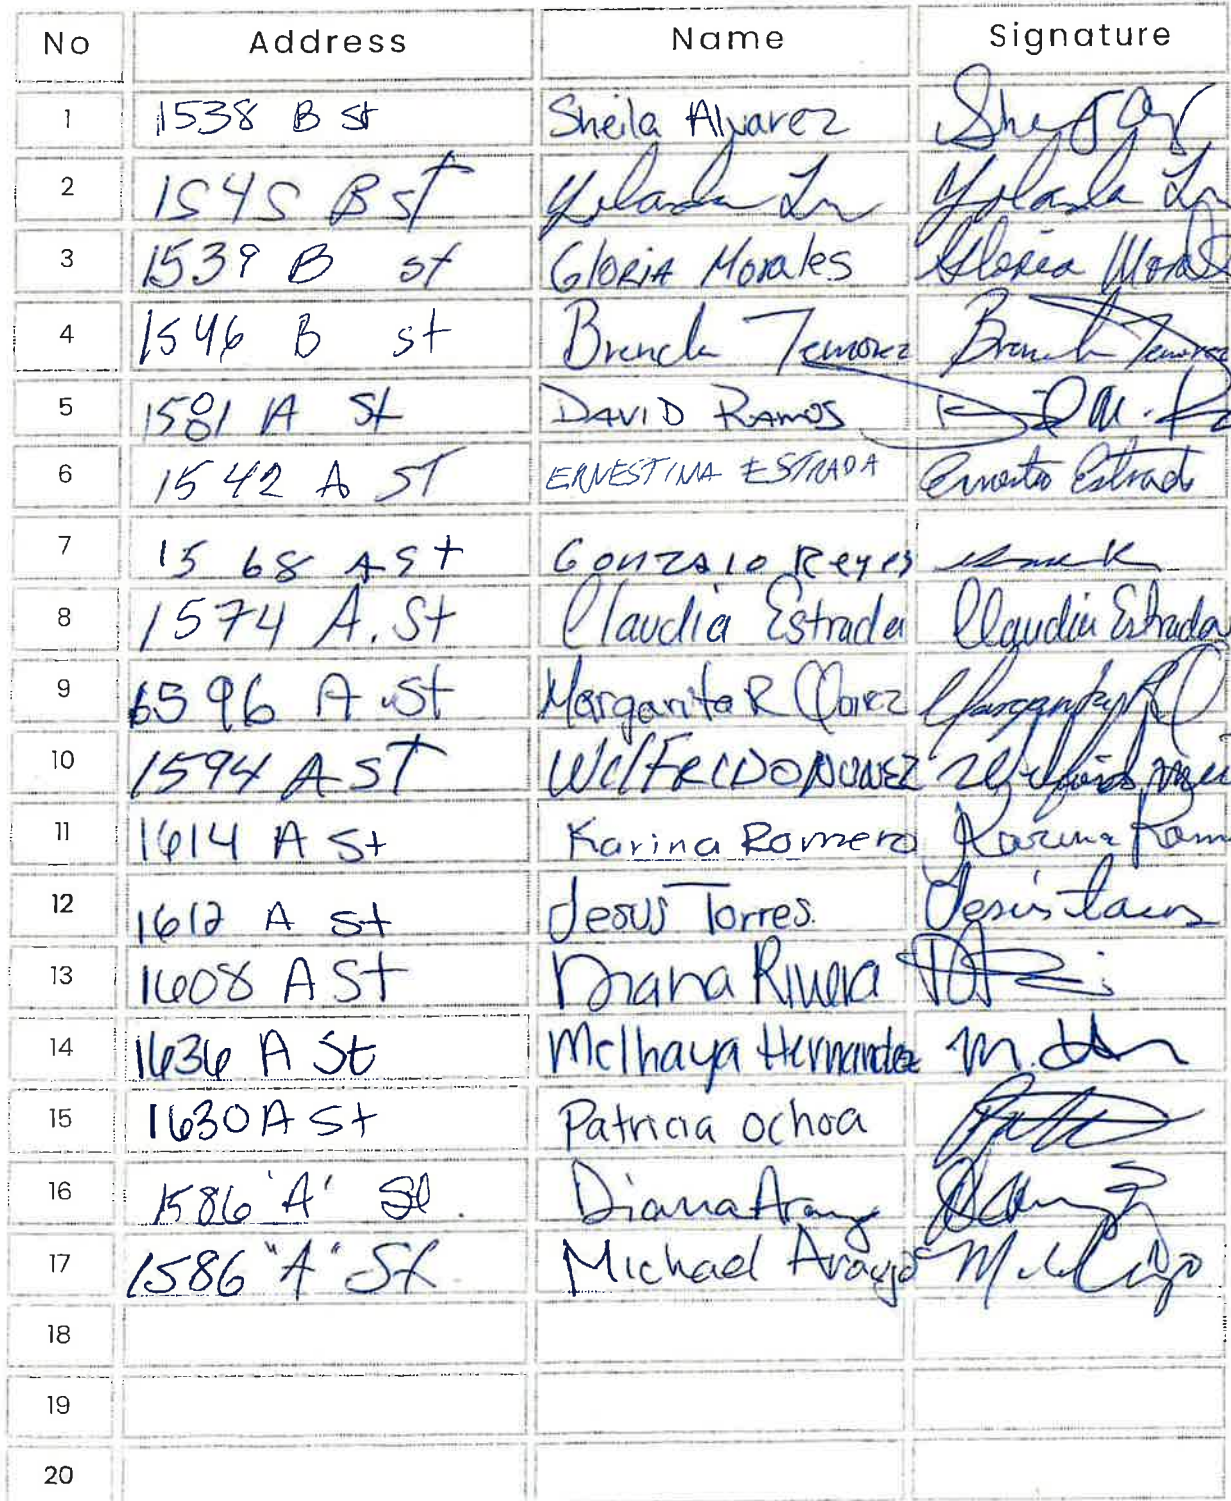 No Address Name Signature
1 1538 B St Sheila Alvarez
2 1545 B st Yolanda Yolanda
3 1539 B st GLORIA Morales Gloria Morales
4 1546 B st Brenda Temorez Brenda Temorez
5 1581 A St DAVID RAMOS
6 1542 A ST ERNESTINA ESTRADA Ernesto Estrad
7 1568 A St Gonzalo Reyes
8 1574 A. St Claudia Estrada Claudia Estrada
9 1596 A St Margarita R
10 1594 A ST WilFRIDO NUNEZ
11 1614 A St Karina Romero Karina Rom
12 1612 A St Jesus Torres. Jesus
13 1608 A St Diana Rivera
14 1636 A St Melhaya Hernandez M.
15 1630 A St Patricia Ochoa
16 1586 'A' St. Diana
17 1586 "A" St. Michael Araujo
18
19
20